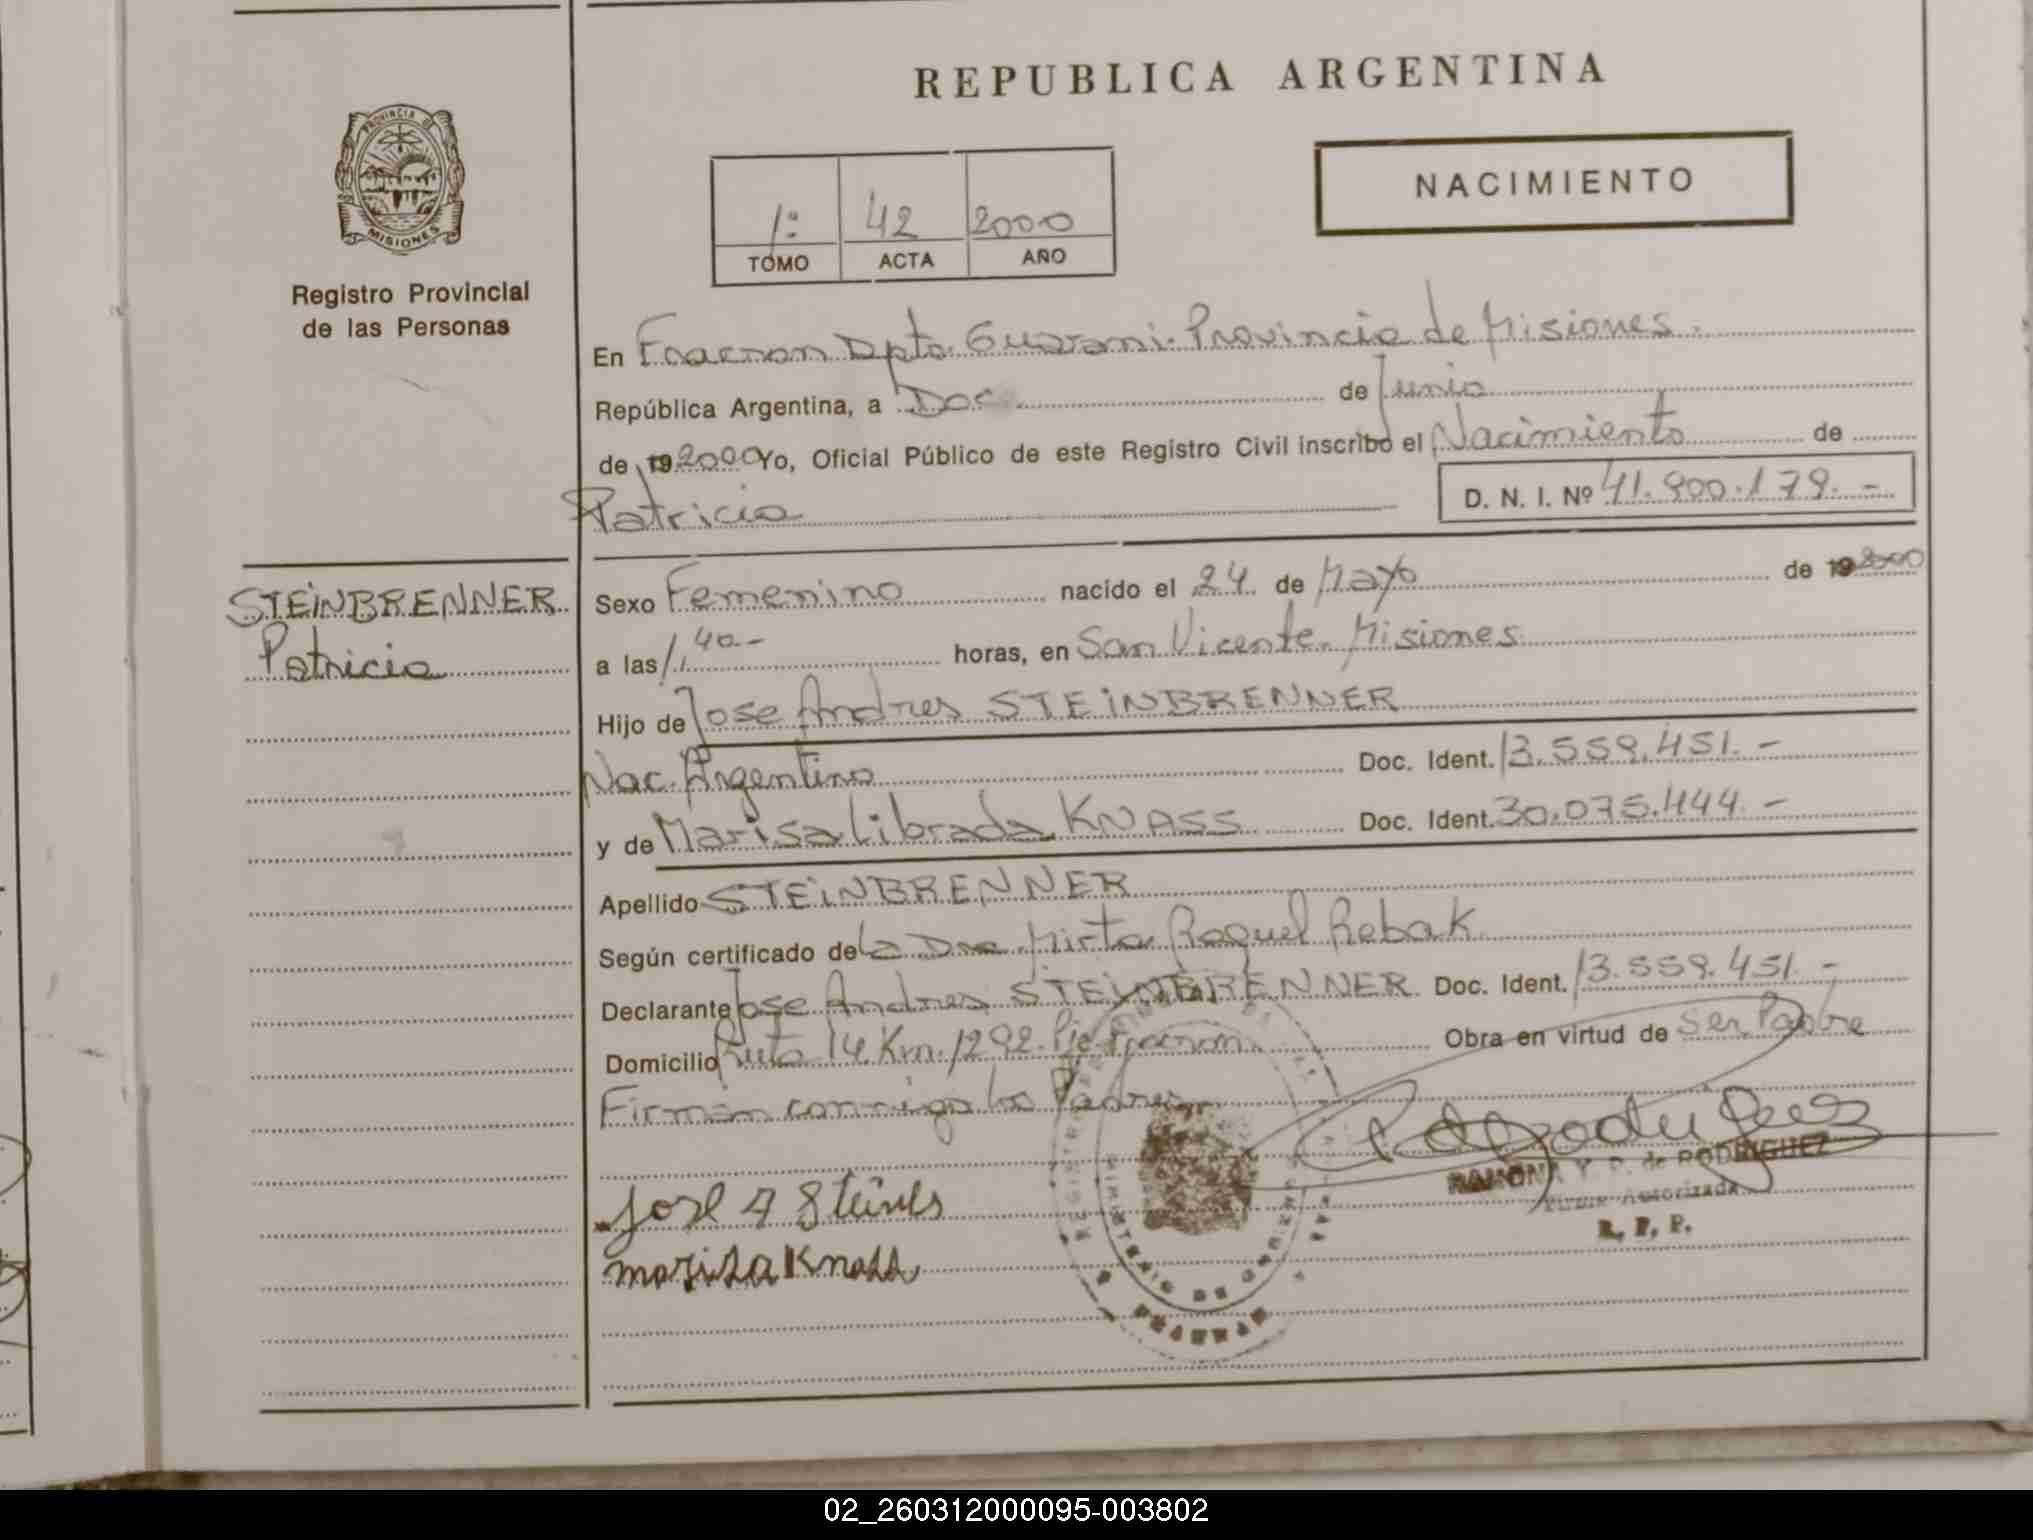 REPUBLICA ARGENTINA
PROVINCIA D
MISIONES
Registro Provincial
de las Personas
NACIMIENTO
1º 42 2000
TOMO ACTA AÑO
En Fracran Dpto. Guarani. Provincia de Misiones.
República Argentina, a Dos de Junio
de 19 2000 Yo, Oficial Público de este Registro Civil inscribo el Nacimiento de
Patricia
D. N. I. Nº 41.900.179.-
STEINBRENNER
Patricia
Sexo Femenino nacido el 24 de Mayo de 19 2000
a las 1,40.- horas, en San Vicente. Misiones
Hijo de Jose Andres STEINBRENNER
Nac. Argentino Doc. Ident. 13.559.451.-
y de Marisa Librada KNASS Doc. Ident. 30.075.444.-
Apellido STEINBRENNER
Según certificado de la Dra Mirta Raquel Rebak
Declarante Jose Andres STEINBRENNER Doc. Ident. 13.559.451.-
Domicilio Ruta 14 Km. 1292. Pje Fracran Obra en virtud de Ser Padre
Firman conmigo los Padres
RAMONA Y. P. de RODRIGUEZ
Firma Autorizada
R. P. P.
Jose A Steinbs
marisa Knass
MINISTERIO DE GOBIERNO
02_260312000095-003802